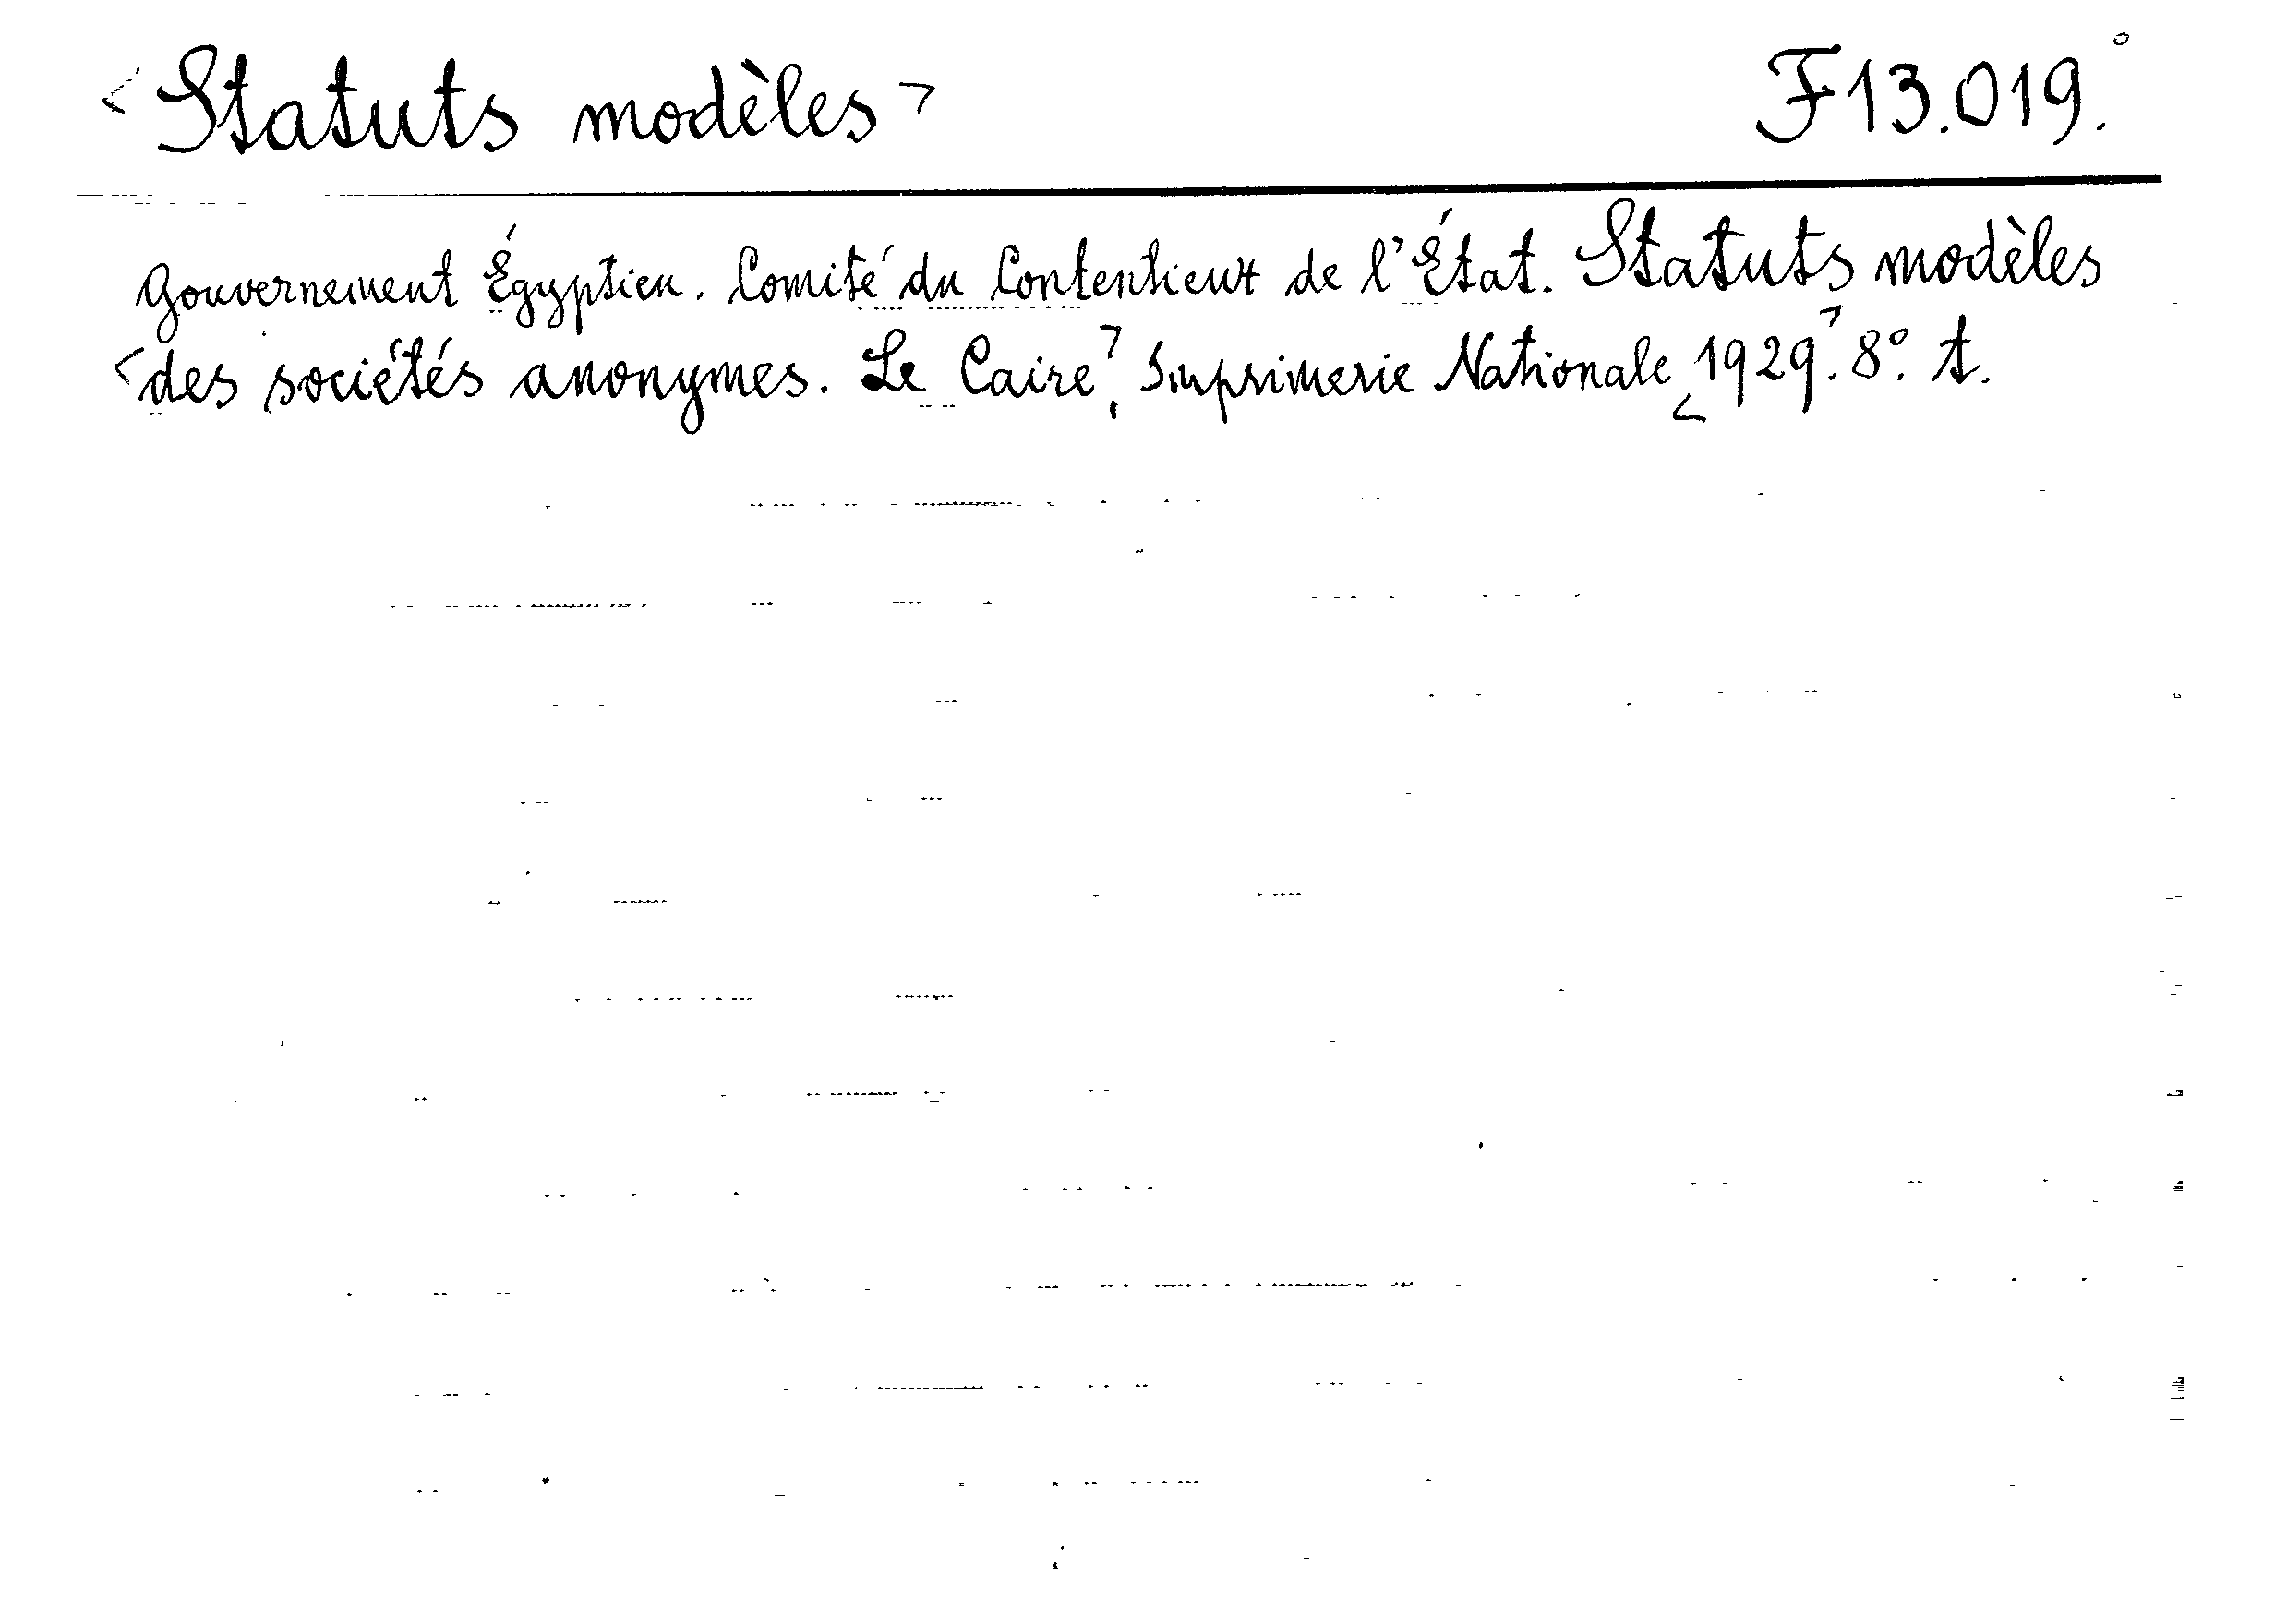 <Statuts modèles> F13.019.°
Gouvernement Égyptien. Comité du Contentieux de l'État. Statuts modèles
<des sociétés anonymes. Le Caire>, Imprimerie Nationale <1929>. 8°. t.